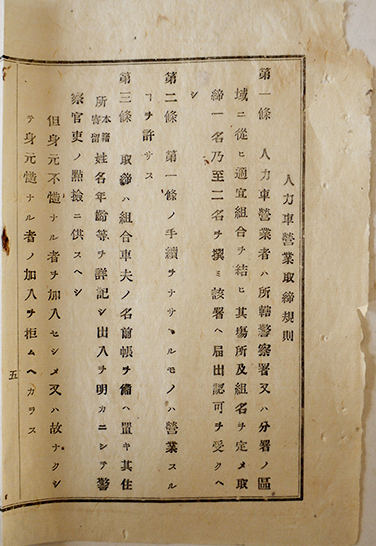 人力車營業取締規則
第一條　人力車營業者ハ所轄警察署又ハ分署ノ區
域ニ從ヒ適宜組合ヲ結ヒ其塲所及組名ヲ定メ取
締一名乃至二名ヲ撰ミ該署ヘ届出認可ヲ受クヘ
シ
第二條　第一條ノ手續ヲナサヽルモノハ營業スル
ヿヲ許サス
第三條　取締ハ組合車夫ノ名前帳ヲ備ヘ置キ其住
所本籍寄留姓名年齡等ヲ詳記シ出入ヲ明カニシテ警
察官吏ノ點撿ニ供スヘシ
但身元不慥ナル者ヲ加入セシメ又ハ故ナクシ
テ身元慥ナル者ノ加入ヲ拒ムヘカラス
五